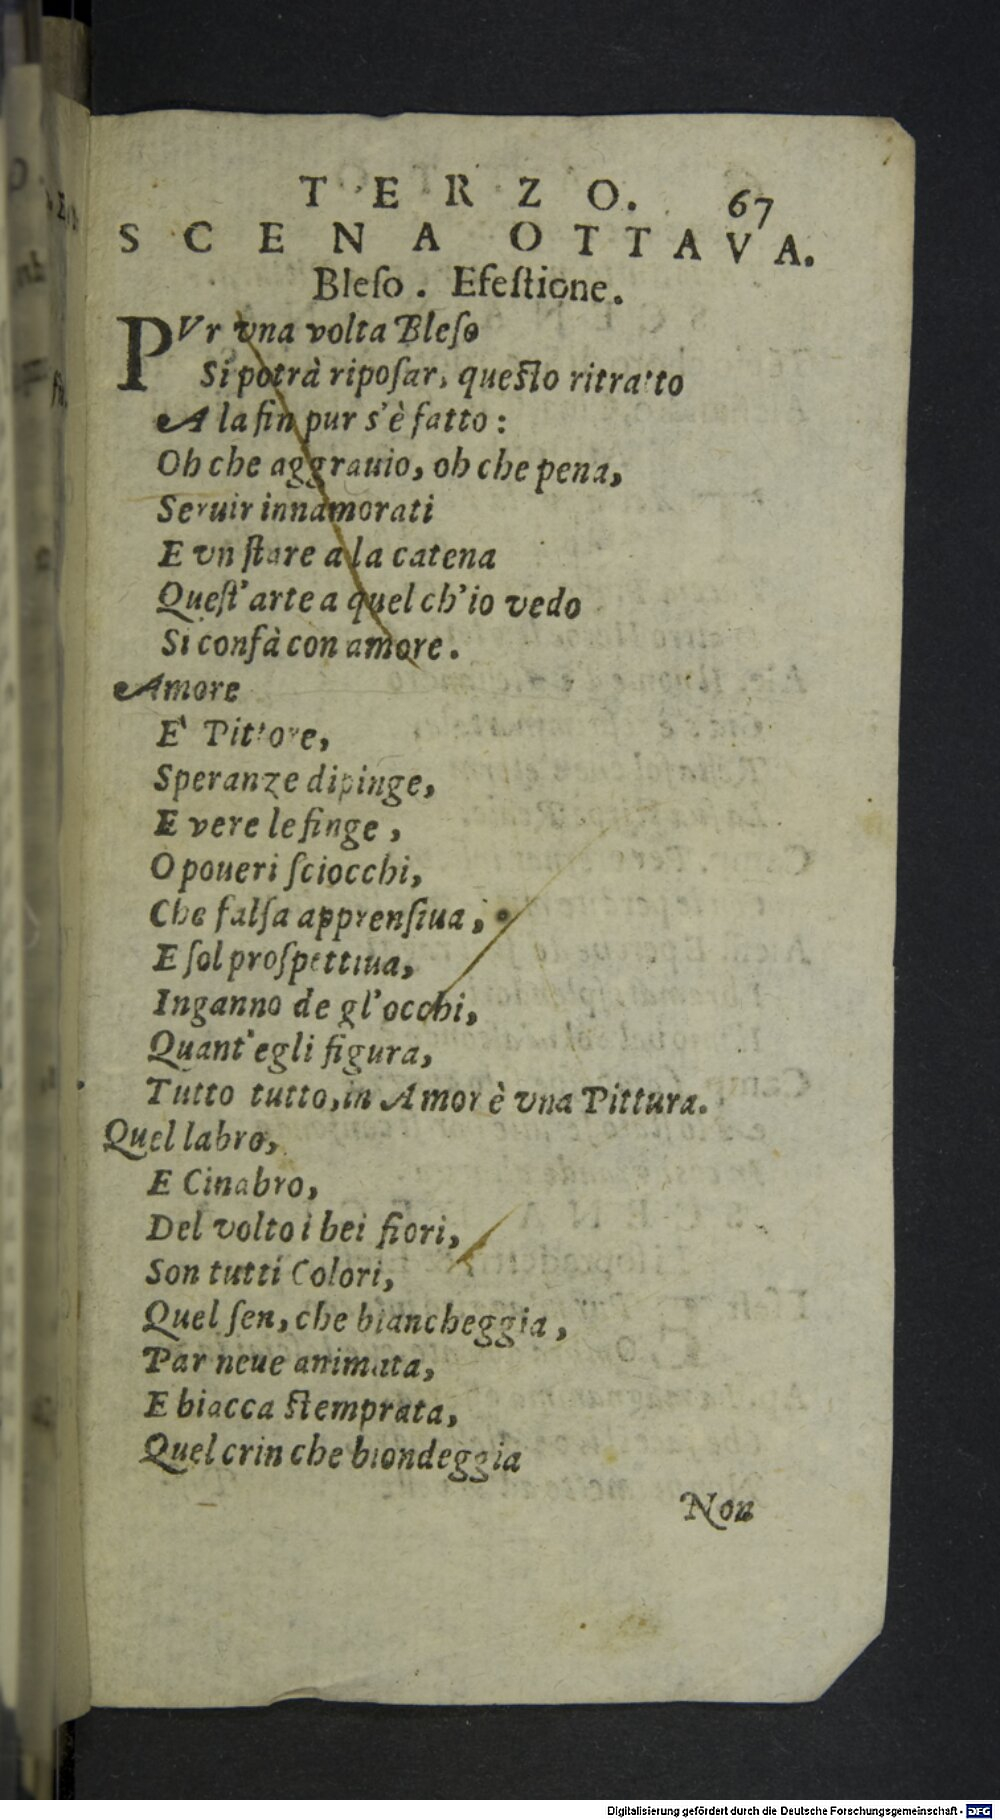 TERZO. 67
SCENA OTTAVA.
Bleſo. Efeſtione.
PVr vna volta Bleſo
Si potrà ripoſar, queſto ritratto
A la fin pur s'è fatto:
Oh che aggrauio, oh che pena,
Seruir innamorati
E vn ſtare a la catena
Queſt'arte a quel ch'io vedo
Si confà con amore.
Amore
E' Pittore,
Speranze dipinge,
E vere le finge,
O poueri ſciocchi,
Che falſa apprenſiua,
E ſol proſpettiua,
Inganno de gl'occhi,
Quant'egli figura,
Tutto tutto, in Amor è vna Pittura.
Quel labro,
E Cinabro,
Del volto i bei fiori,
Son tutti Colori,
Quel ſen, che biancheggia,
Par neue animata,
E biacca ſtemprata,
Quel crin che biondeggia
Non
Digitalisierung gefördert durch die Deutsche Forschungsgemeinschaft - DFG